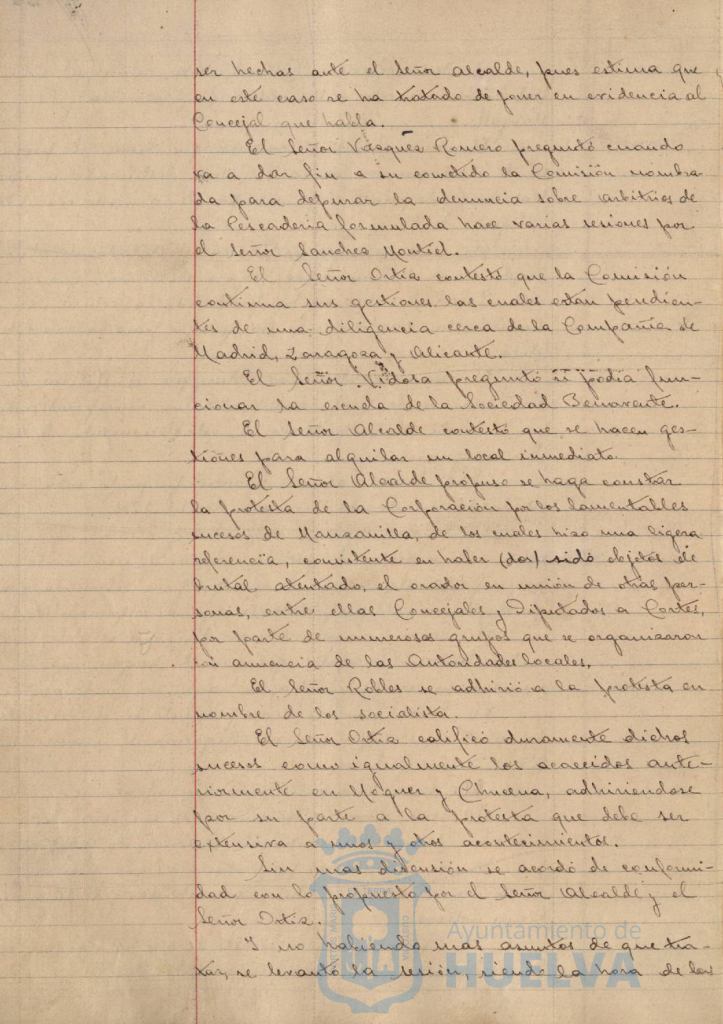 ser hechas ante el Señor Alcalde, pues estima que
en este caso se ha tratado de poner en evidencia al
Concejal que habla.
El Señor Vázquez Romero preguntó cuando
va a dar fin a su cometido la Comisión nombra-
da para depurar la denuncia sobre arbitrios de
la Pescadería formulada hace varias sesiones por
el Señor Sanchez Montiel.
El Señor Ortiz contestó que la Comisión
continua sus gestiones las cuales están pendien-
tes de una diligencia cerca de la Compañía de
Madrid, Zaragoza y Alicante.
El Señor Vidosa preguntó si podía fun-
cionar la escuela de la Sociedad Benavente.
El Señor Alcalde contestó que se hacen ges-
tiones para alquilar un local inmediato.
El Señor Alcalde propuso se haga constar
la protesta de la Corporación por los lamentables
sucesos de Manzanilla, de los cuales hizo una ligera
referencia, consistente en haber (dos) sido objetos de
brutal atentado, el orador en unión de otras per-
sonas, entre ellas Concejales y Diputados a Cortes,
por parte de numerosos grupos que se organizaron
con anuencia de las Autoridades locales.
El Señor Robles se adhirió a la protesta en
nombre de los socialista.
El Señor Ortiz calificó duramente dichos
sucesos como igualmente los acaecidos ante-
riormente en Moguer y Chucena, adhiriendose
por su parte a la protesta que debe ser
extensiva a unos y otros acontecimientos.
Sin mas discusión se acordó de conformi-
dad con lo propuesto por el Señor Alcalde y el
Señor Ortiz.
Y no habiendo mas asuntos de que tra-
tar, se levantó la sesión, siendo la hora de las
Ayuntamiento de
HUELVA